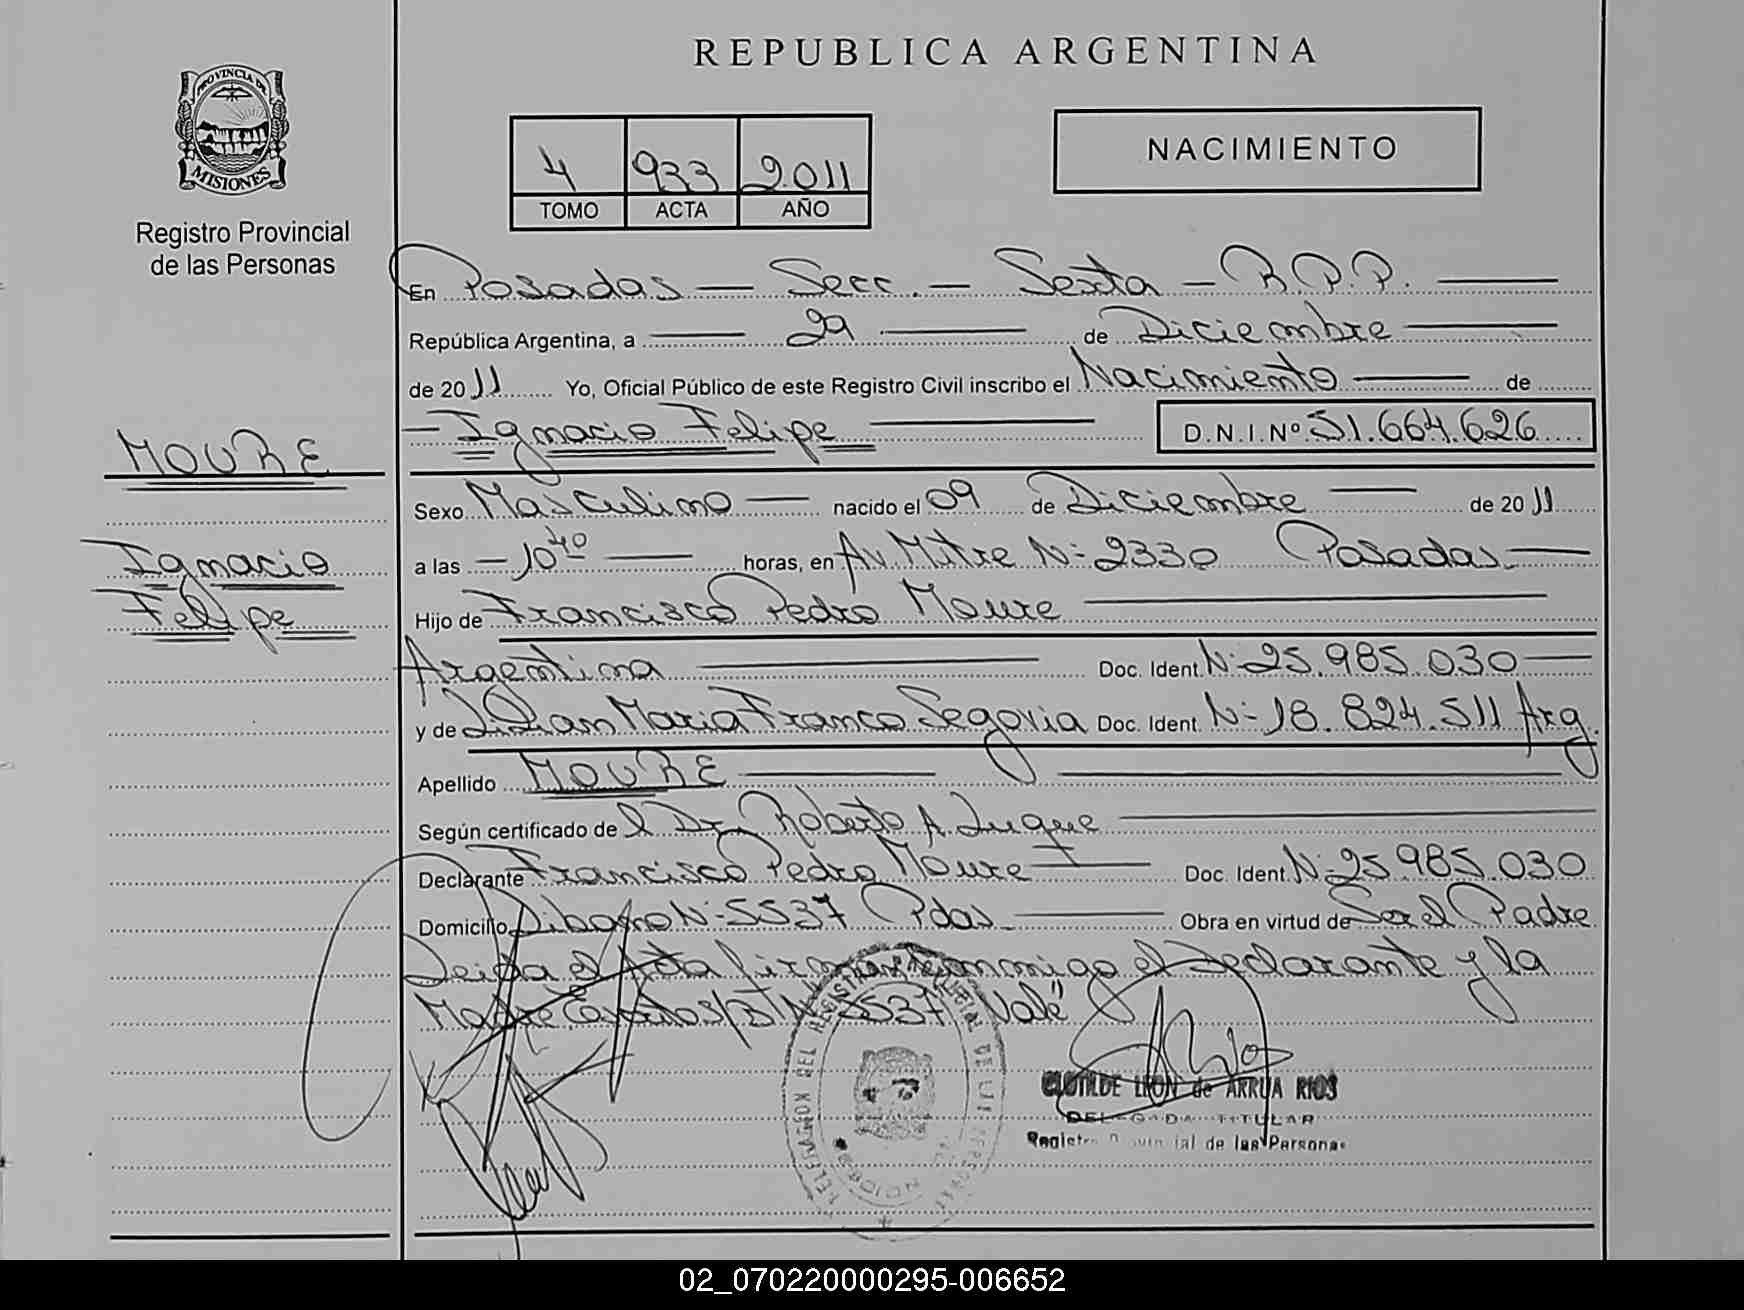 REPUBLICA ARGENTINA
PROVINCIA DE
MISIONES
Registro Provincial
de las Personas
4 933 2011
TOMO ACTA AÑO
NACIMIENTO
En Posadas — Secc. — Sexta — R.P.P. —
República Argentina, a — 29 — de Diciembre —
de 2011 Yo, Oficial Público de este Registro Civil inscribo el Nacimiento — de
— Ignacio Felipe — D.N.I.Nº 51.664.626
MOURE
Ignacio
Felipe
Sexo Masculino — nacido el 09 de Diciembre — de 2011
a las — 10 40 — horas, en Av. Mitre Nº 2330 Posadas —
Hijo de Francisco Pedro Moure —
Argentina — Doc. Ident. Nº 25.985.030 —
y de Lilian Maria Franco Segovia Doc. Ident. Nº 18.824.511 Arg.
Apellido MOURE —
Según certificado de l Dr. Roberto A. Luque —
Declarante Francisco Pedro Moure — Doc. Ident. Nº 25.985.030
Domicilio Nº 5537 Pdas. — Obra en virtud de Ser el Padre
Leida el Acta firman conmigo el Declarante y la
Madre 5537 Vale
CLOTILDE LEON de ARRUA RIOS
DELEGADA TITULAR
Registro Provincial de las Personas
02_070220000295-006652